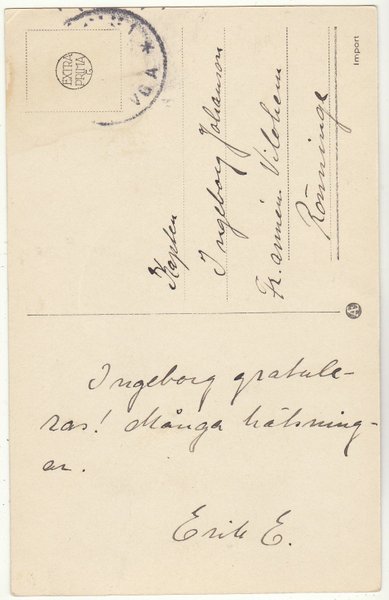 EXTRA
PRIMA
VGA *
Import
Kapten
Ingeborg Johanson
Fr. armén Vilohem
Rönninge
Ingeborg gratule-
ras! Många hälsning-
ar.
Erik E.